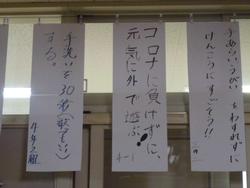 手あらいうがいをわすれずに
けんこうにすごそう!!
コロナに負けずに、
元気に外で遊ぶ!
4-1
手洗いを30秒(歌2回)
する。
4年2組